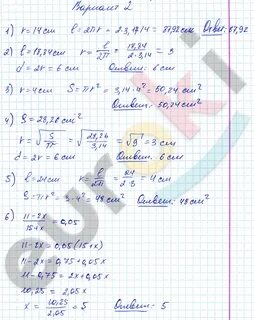 Вариант 2
1) r=14см l=2πr=2·3,14·14=87,92см Ответ: 87,92
2) l=18,84см r=l/2π=18,84/2·3,14=3
d=2r=6см Ответ: 6см
3) r=4см S=πr²=3,14·4²=50,24см²
Ответ: 50,24см²
4) S=28,26см²
r=√S/π=√28,26/3,14=√9=3см
d=2r=6см Ответ: 6см
5) l=24см r=l/2π=24/2·3=4
S=πr²=3·4²=48см² Ответ: 48см²
6) 11-2x/15+x=0,05
11-2x=0,05(15+x)
11-2x=0,75+0,05x
11-0,75=2x+0,05x
10,25=2,05x
x=10,25/2,05=5 Ответ: 5
euroki